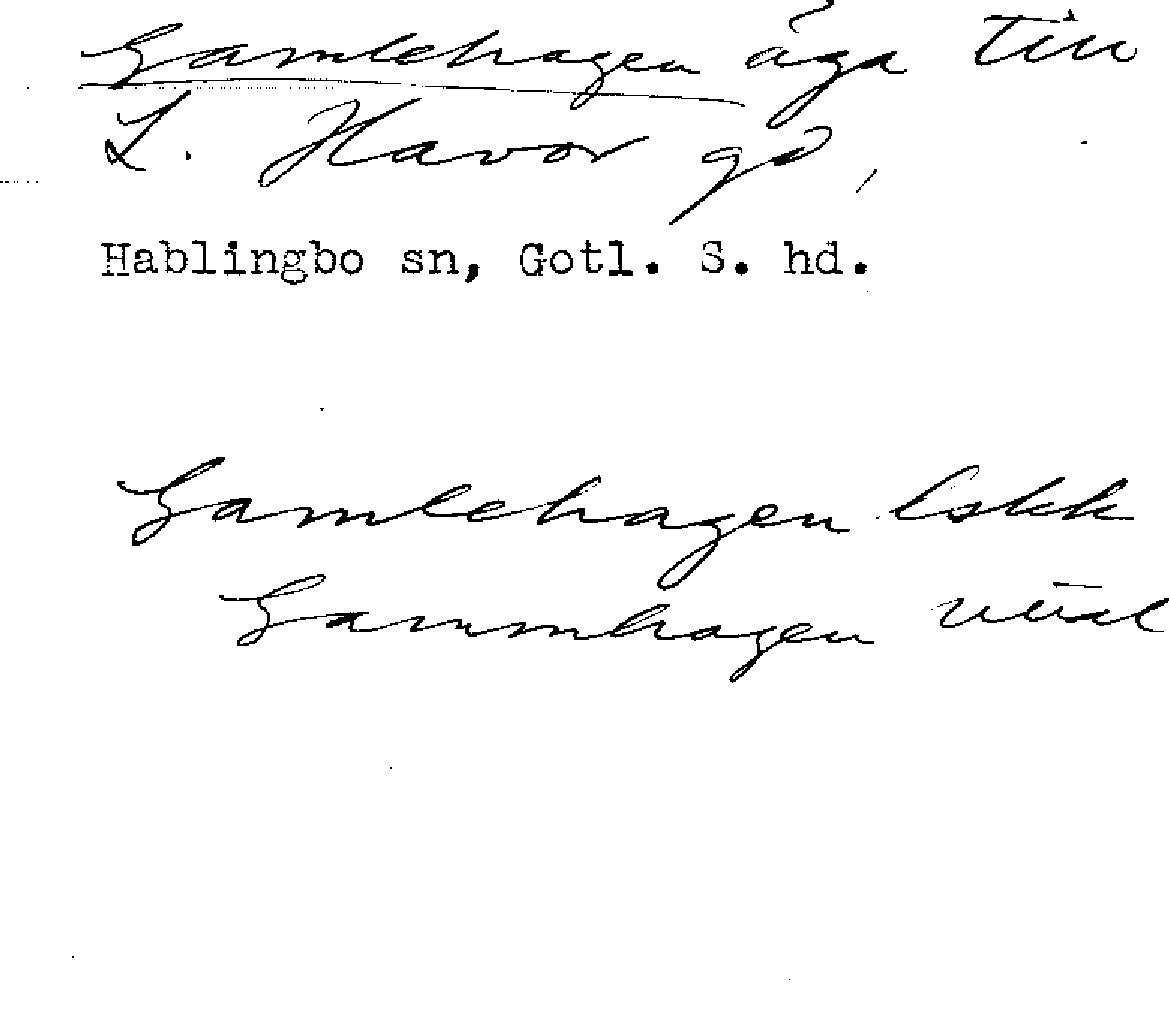 Gamlehagen äga till
L. Havor gd,
Hablingbo sn, Gotl. S. hd.
Gamlehagen lskk
Gammhagen